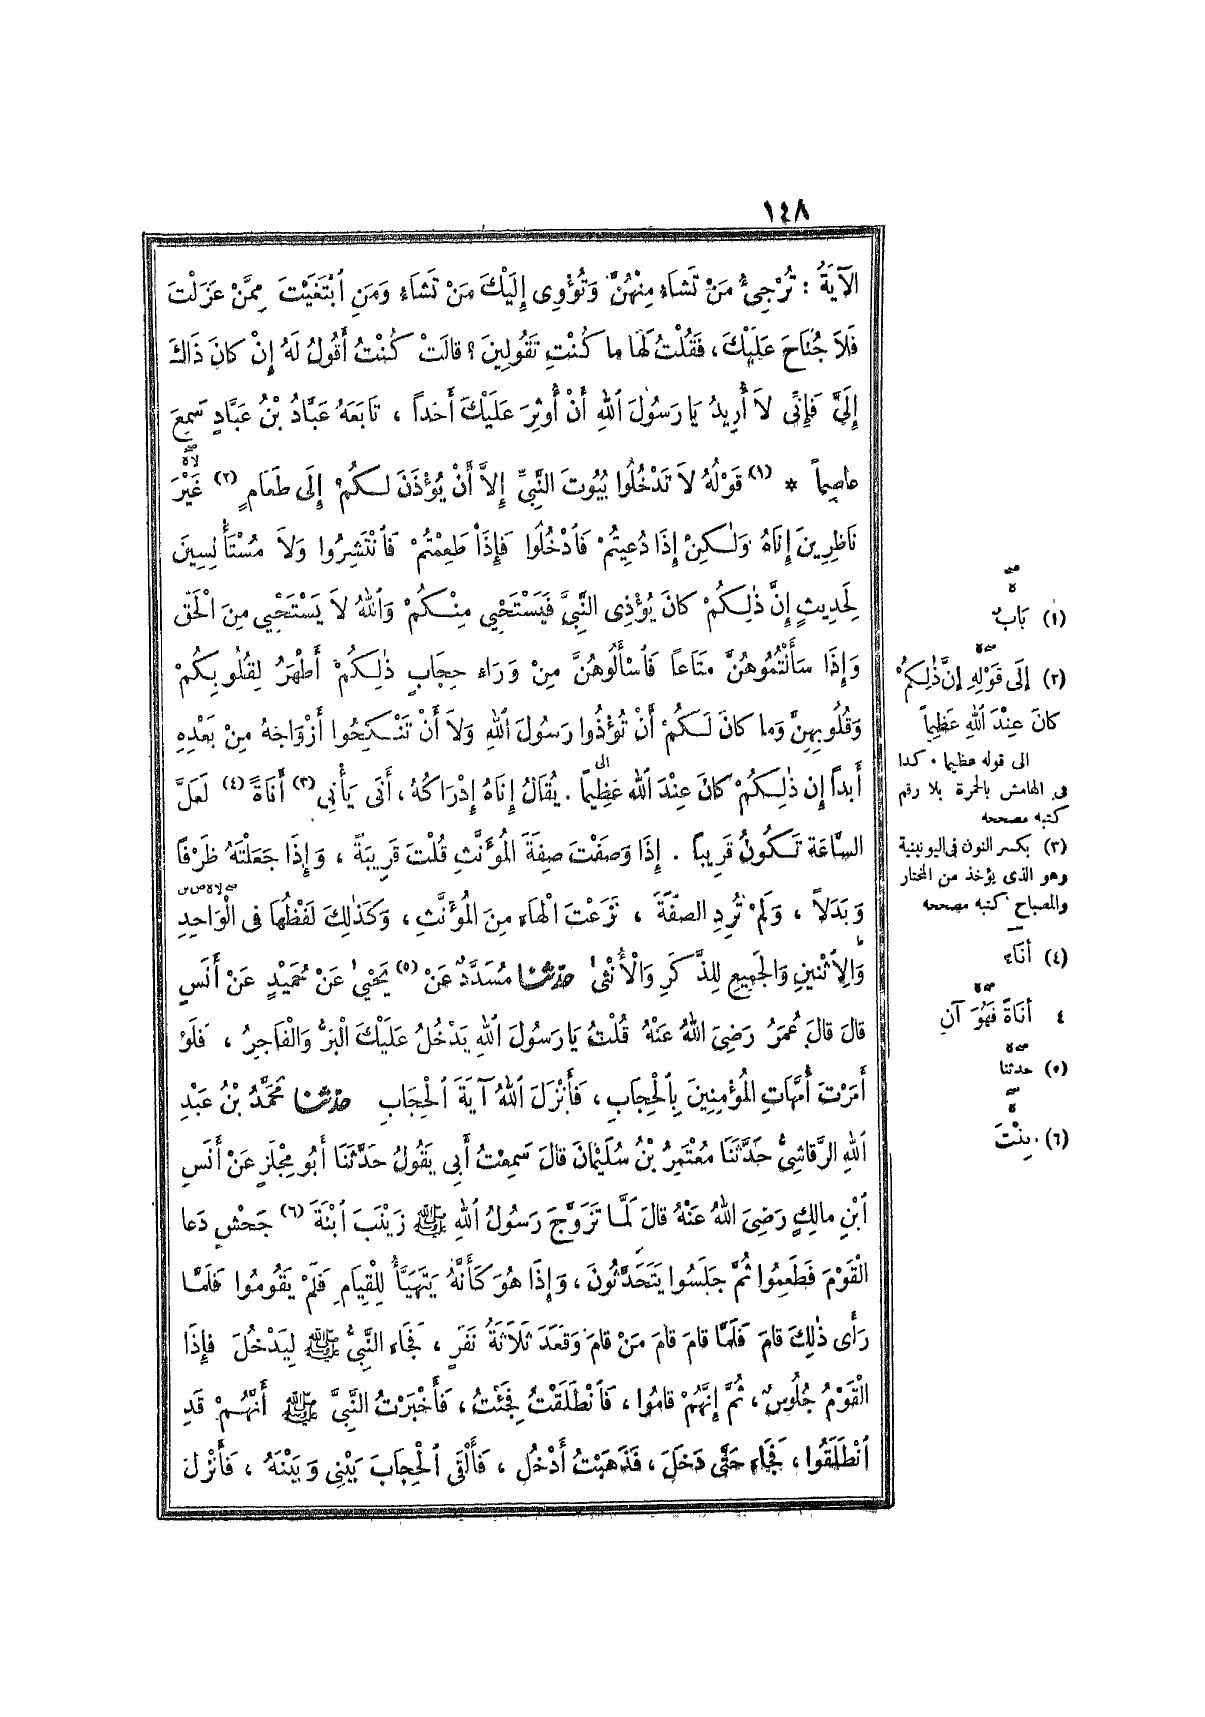 ١٤٨
الآيَةُ : تُرْجِئُ مَنْ تَشَاءُ مِنْهُنَّ وَتُؤْوِى إِلَيْكَ مَنْ تَشَاءُ وَمَنِ ٱبْتَغَيْتَ مِمَّنْ عَزَلْتَ
فَلاَ جُنَاحَ عَلَيْكَ ، فَقُلْتُ لَهَا ما كُنْتِ تَقُولِينَ ؟ قالَتْ كُنْتُ أَقُولُ لَهُ إِنْ كانَ ذَاكَ
إِلَيَّ فَإِنِّى لاَ أُرِيدُ يَا رَسُولَ ٱللهِ أَنْ أُوثِرَ عَلَيْكَ أَحَداً ، تَابَعَهُ عَبَّادُ بْنُ عَبَّادٍ سَمِعَ
عاصِماً * (١) قَوْلُهُ لاَ تَدْخُلُوا بُيُوتَ النَّبِيِّ إِلاَّ أَنْ يُؤْذَنَ لَكُمْ إِلَى طَعَامٍ (٢) غَيْرَ
نَاظِرِينَ إِنَاهُ وَلٰكِنْ إِذَا دُعِيتُمْ فَٱدْخُلُوا فَإِذَا طَعِمْتُمْ فَٱنْتَشِرُوا وَلاَ مُسْتَأْنِسِينَ
لِحَدِيثٍ إِنَّ ذٰلِكُمْ كانَ يُؤْذِى النَّبِيَّ فَيَسْتَحْيِي مِنْكُمْ وَٱللهُ لاَ يَسْتَحْيِي مِنَ الْحَقِّ
وَإِذَا سَأَلْتُمُوهُنَّ مَتَاعاً فَٱسْأَلُوهُنَّ مِنْ وَرَاءِ حِجَابٍ ذٰلِكُمْ أَطْهَرُ لِقُلُوبِكُمْ
وَقُلُوبِهِنَّ وَما كانَ لَكُمْ أَنْ تُؤْذُوا رَسُولَ ٱللهِ وَلاَ أَنْ تَنْكِحُوا أَزْوَاجَهُ مِنْ بَعْدِهِ
أَبَداً إِنَّ ذٰلِكُمْ كانَ عِنْدَ ٱللهِ عَظِيماً . يُقَالُ إِنَاهُ إِدْرَاكُهُ ، أَنَى يَأْنِى (٣) أَنَاةً (٤) لَعَلَّ
السَّاعَةَ تَكُونُ قَرِيباً . إِذَا وَصَفْتَ صِفَةَ المُؤَنَّثِ قُلْتَ قَرِيبَةً ، وَإِذَا جَعَلْتَهُ ظَرْفًا
وَبَدَلاً ، وَلَمْ تُرِدِ الصِّفَةَ ، نَزَعْتَ الْهَاءَ مِنَ المُؤَنَّثِ ، وَكَذٰلِكَ لَفْظُهَا فِى الْوَاحِدِ
وَالِاثْنَيْنِ وَالجَمِيعِ لِلذَّكَرِ وَالْأُنْثَى حَدَّثَنَا مُسَدَّدٌ عَنْ (٥) يَحْيَىٰ عَنْ حُمَيْدٍ عَنْ أَنَسٍ
قالَ قالَ عُمَرُ رَضِىَ اللهُ عَنْهُ قُلْتُ يَا رَسُولَ ٱللهِ يَدْخُلُ عَلَيْكَ الْبَرُّ وَالْفَاجِرُ ، فَلَوْ
أَمَرْتَ أُمَّهَاتِ المُؤْمِنِينَ بِٱلْحِجَابِ ، فَأَنْزَلَ ٱللهُ آيَةَ ٱلْحِجَابِ حَدَّثَنَا مُحَمَّدُ بْنُ عَبْدِ
ٱللهِ الرَّقاشِىُّ حَدَّثَنَا مُعْتَمِرُ بْنُ سُلَيْمَانَ قالَ سَمِعْتُ أَبِى يَقُولُ حَدَّثَنَا أَبُو مِجْلَزٍ عَنْ أَنَسِ
ٱبْنِ مالِكٍ رَضِىَ اللهُ عَنْهُ قالَ لَمَّا تَزَوَّجَ رَسُولُ ٱللهِ ﷺ زَيْنَبَ ٱبْنَةَ (٦) جَحْشٍ دَعا
الْقَوْمَ فَطَعِمُوا ثُمَّ جَلَسُوا يَتَحَدَّثُونَ ، وَإِذَا هُوَ كَأَنَّهُ يَتَهَيَّأُ لِلْقِيَامِ فَلَمْ يَقُومُوا فَلَمَّا
رَأَى ذٰلِكَ قامَ فَلَمَّا قامَ قامَ مَنْ قامَ وَقَعَدَ ثَلاَثَةُ نَفَرٍ ، فَجَاءَ النَّبِيُّ ﷺ لِيَدْخُلَ فَإِذَا
الْقَوْمُ جُلُوسٌ ، ثُمَّ إِنَّهُمْ قامُوا ، فَٱنْطَلَقْتُ فَجِئْتُ ، فَأَخْبَرْتُ النَّبِيَّ ﷺ أَنَّهُمْ قَدِ
ٱنْطَلَقُوا ، فَجَاءَ حَتَّى دَخَلَ ، فَذَهَبْتُ أَدْخُلُ ، فَأَلْقَى ٱلْحِجَابَ بَيْنِى وَبَيْنَهُ ، فَأَنْزَلَ
(١) بَابٌ
(٢) إِلَى قَوْلِهِ إِنَّ ذٰلِكُمْ
كانَ عِنْدَ اللهِ عَظِيماً
الى قوله عظيما . كذا
فى الهامش بالحمرة بلا رقم
كتبه مصححه
(٣) بكسر النون فى اليونينية
وهو الذى يؤخذ من المختار
والمصباح كتبه مصححه
(٤) أَنَاء
٤ أَنَاةً فَهُوَ آنٍ
(٥) حدثنا
(٦) بِنْتَ